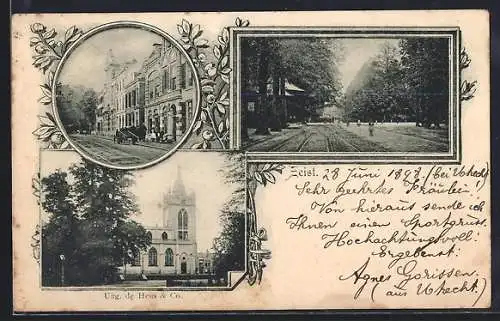 Zeist. 28 Juni 1897. (bei Utrecht)
Sehr Geehrtes Fräulein!
Von hieraus sende ich
Ihnen einen Sportgruss.
Hochachtungsvoll:
Ergebenst:
Agnes Gorissen.
(aus Utrecht.)
Uitg. de Haas & Co.